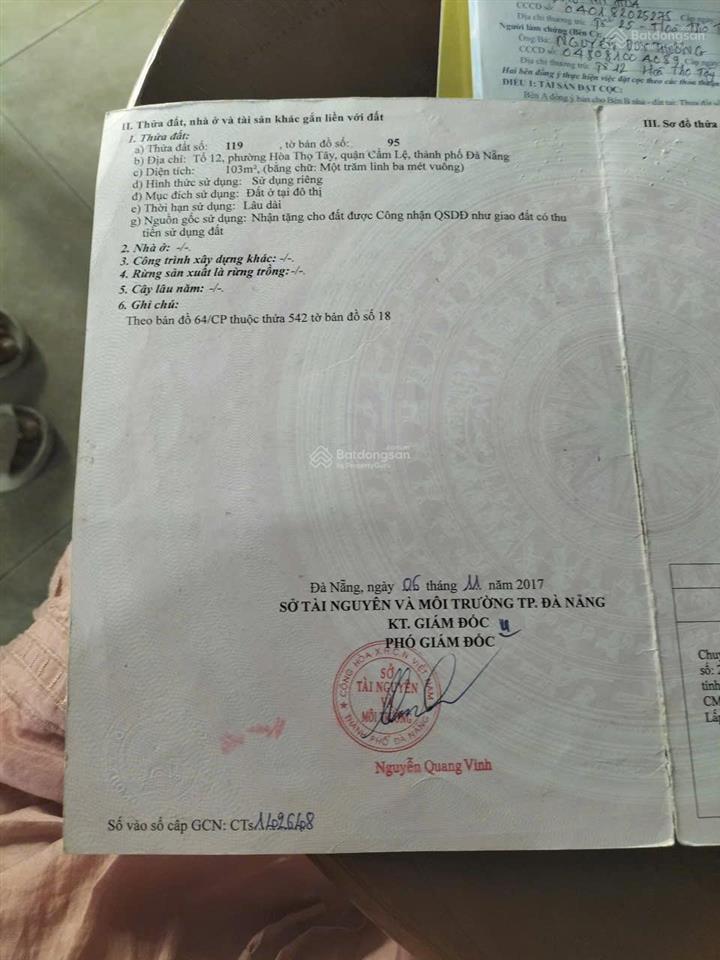 CCCD số: 040182025275 Cấp ngày
Địa chỉ thường trú:
Người làm chứng (Bên C):
Ông/Bà: NGUYỄN
CCCD số: Cấp ngày
Địa chỉ thường trú: Tổ 12 Hoà Thọ Tây
Hai bên đồng ý thực hiện việc đặt cọc theo các thỏa thuận
ĐIỀU 1: TÀI SẢN ĐẶT CỌC:
Bên A đồng ý bán cho Bên B nhà - đất tại: Thửa đất số
II. Thửa đất, nhà ở và tài sản khác gắn liền với đất
1. Thửa đất:
a) Thửa đất số: 119 , tờ bản đồ số: 95
b) Địa chỉ: Tổ 12, phường Hòa Thọ Tây, quận Cẩm Lệ, thành phố Đà Nẵng
c) Diện tích: 103m², (bằng chữ: Một trăm linh ba mét vuông)
d) Hình thức sử dụng: Sử dụng riêng
đ) Mục đích sử dụng: Đất ở tại đô thị
e) Thời hạn sử dụng: Lâu dài
g) Nguồn gốc sử dụng: Nhận tặng cho đất được Công nhận QSDĐ như giao đất có thu
tiền sử dụng đất
2. Nhà ở: -/-.
3. Công trình xây dựng khác: -/-.
4. Rừng sản xuất là rừng trồng:-/-.
5. Cây lâu năm: -/-.
6. Ghi chú:
Theo bản đồ 64/CP thuộc thửa 542 tờ bản đồ số 18
III. Sơ đồ thửa
Batdongsan
by PropertyGuru
Đà Nẵng, ngày 06 tháng 11 năm 2017
SỞ TÀI NGUYÊN VÀ MÔI TRƯỜNG TP. ĐÀ NẴNG
KT. GIÁM ĐỐC
PHÓ GIÁM ĐỐC
CỘNG HÒA X.H.C.N VIỆT NAM
SỞ
TÀI NGUYÊN
VÀ
MÔI TRƯỜNG
THÀNH PHỐ ĐÀ NẴNG
Nguyễn Quang Vinh
Số vào sổ cấp GCN: CTs
Chuy
số: 2
tỉnh
CM
Lắ